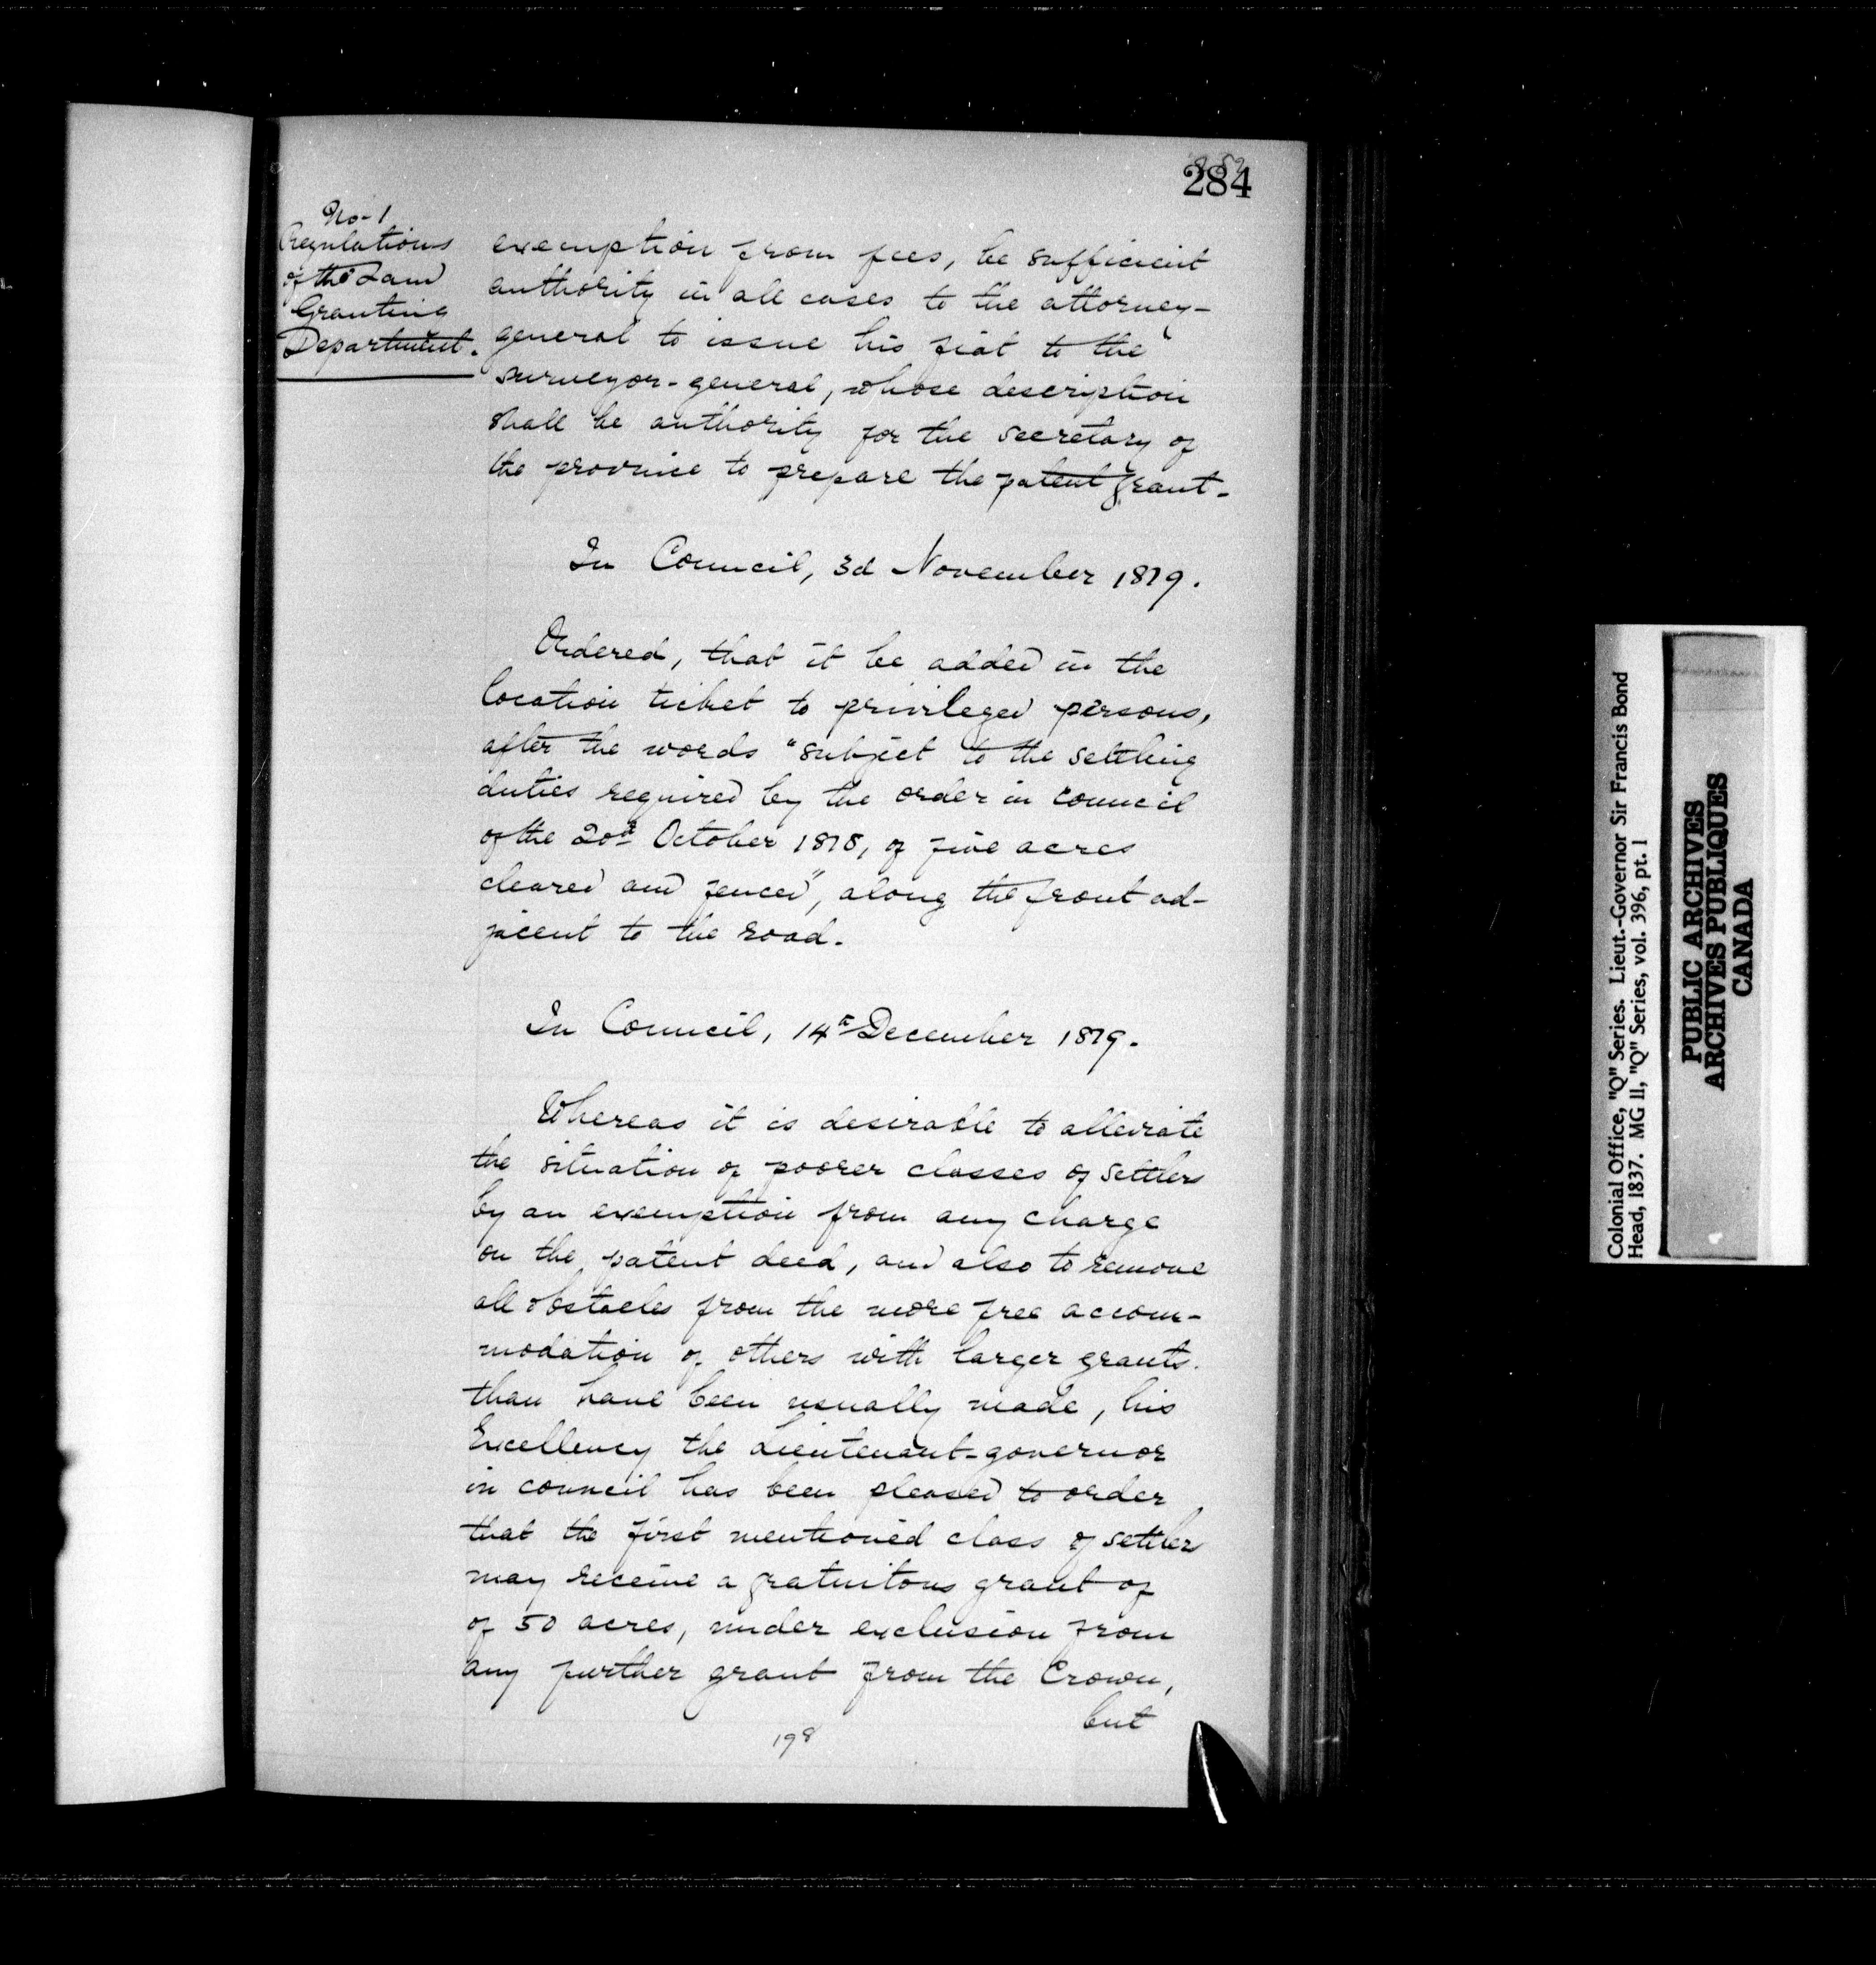 284
No. 1
Regulations
of the Land
Granting
Department.
exemption from fees, be sufficient
authority in all cases to the attorney-
general to issue his fiat to the
surveyor-general, whose description
shall be authority for the secretary of
the province to prepare the patent grant.
In Council, 3d November 1819.
Ordered, that it be added in the
location ticket to privileged persons,
after the words "subject to the settling
duties required by the order in council
of the 20th October 1818, of five acres
cleared and fenced", along the front ad-
jacent to the road.
In Council, 14th December 1819.
Whereas it is desirable to alleviate
the situation of poorer classes of settlers
by an exemption from any charge
on the patent deed, and also to remove
all obstacles from the more free accom-
modation of others with larger grants.
than have been usually made, his
Excellency the Lieutenant-governor
in council has been pleased to order
that the first mentioned class of settler
may receive a gratuitous grant of
of 50 acres, under exclusion from
any further grant from the Crown,
but
198
Colonial Office, "Q" Series. Lieut.-Governor Sir Francis Bond
Head, 1837. MG 11, "Q" Series, vol. 396, pt. 1
PUBLIC ARCHIVES
ARCHIVES PUBLIQUES
CANADA